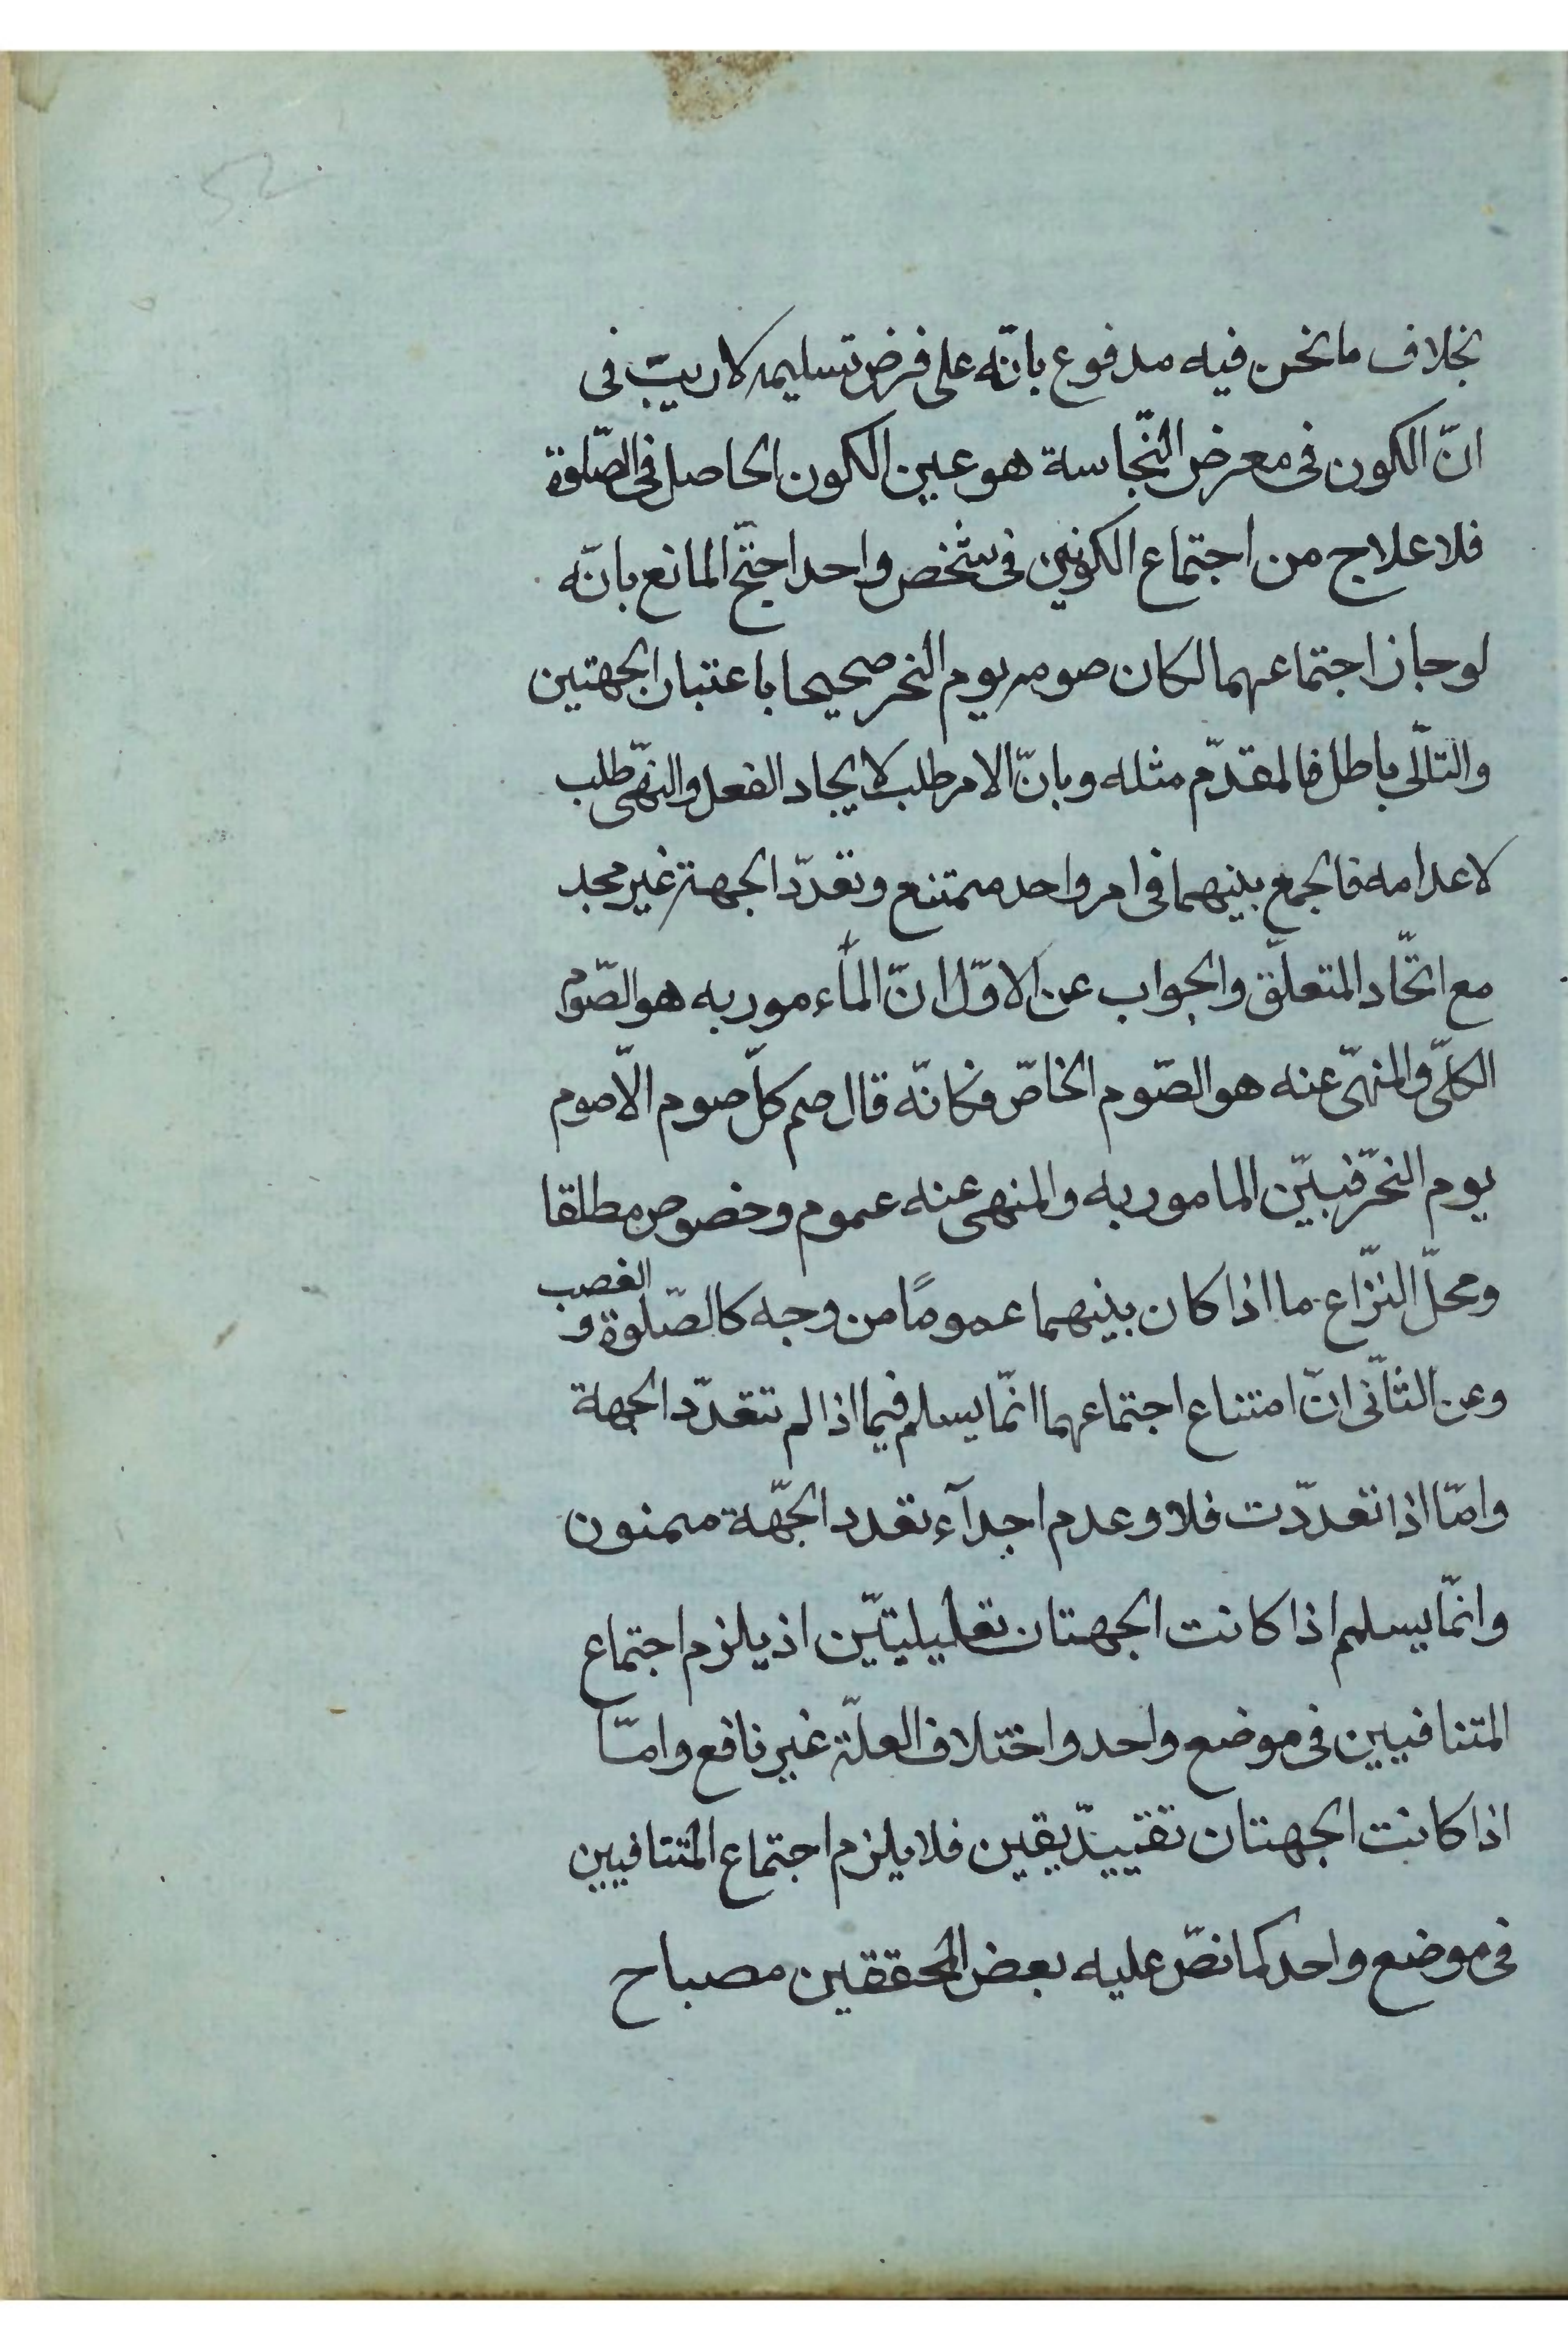 بخلاف ما نحن فيه مدفوع بانّه على فرض تسليمه لا ريب فى
انّ الكون فى معرض النّجاسة هو عين الكون الحاصل فى الصّلوة
فلا علاج من اجتماع الكونين فى شخص واحد احتجّ المانع بانّه
لو جاز اجتماعهما لكان صوم يوم النحر صحيحا باعتبار الجهتين
والتّالى باطل فالمقدّم مثله وبانّ الامر طلب لايجاد الفعل والنهّى طلب
لاعدامه فالجمع بينهما فى امر واحد ممتنع وتعدّد الجهة غير مجد
مع اتّحاد المتعلّق والجواب عن الاوّل انّ المأمور به هو الصّوم
الكلّى والمنهىّ عنه هو الصّوم الخاصّ فكانّه قال صم كلّ صوم الّا صوم
يوم النحر فبيّن المامور به والمنهى عنه عموم وخصوص مطلقا
ومحلّ النزّاع ما اذا كان بينهما عمومًا من وجه كالصّلوة و الغصب
وعن الثّانى انّ امتناع اجتماعهما انّما يسلم فيما اذا لم تتعدّد الجهة
وامّا اذا تعدّدت فلا وعدم اجدآء تعدد الجهّة ممنون
وانّما يسلم اذا كانت الجهتان تعليليتيّن اذ يلزم اجتماع
المتنافيين فى موضع واحد واختلاف العلّة غير نافع وامّا
اذا كانت الجهتان تقييدّيقين فلا يلزم اجتماع المتنافيين
فى موضع واحد كما نصّ عليه بعض المحققين مصباح